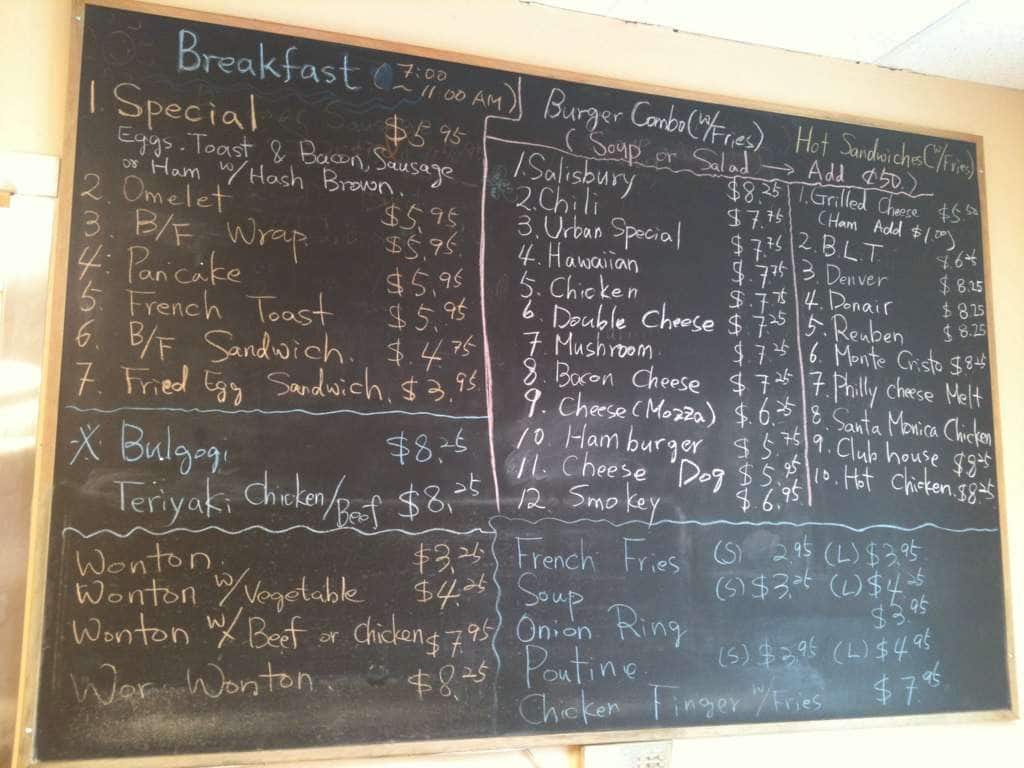 Breakfast 7:00 ~ 11:00 AM)
1. Special $5.95
Eggs. Toast & Bacon, Sausage
or Ham w/ Hash Brown.
2. Omelet $5.95
3. B/F Wrap $5.95.
4. Pancake $5.95
5. French Toast $5.95
6. B/F Sandwich. $4.75
7. Fried Egg Sandwich. $3.95
X Bulgogi $8.25
Teriyaki Chicken/Beef $8.25
Wonton $3.25
Wonton w/ Vegetable $4.25
Wonton w/ Beef or Chicken $7.95
War Wonton. $8.25
Burger Combo (w/Fries)
(Soup or Salad → Add ¢50)
1. Salisbury $8.25
2. Chili $7.75
3. Urban Special $7.75
4. Hawaiian $7.75
5. Chicken $7.75
6. Double Cheese $7.25
7. Mushroom. $7.25
8. Bacon Cheese $7.25
9. Cheese (Mozza) $6.25
10. Hamburger $5.75
11. Cheese Dog $5.95
12. Smokey $6.95
Hot Sandwiches (w/Fries)
1. Grilled Cheese $5.50
(Ham Add $1.00)
2. B.L.T $6.25
3. Denver $8.25
4. Donair $8.25
5. Reuben $8.25
6. Monte Cristo $8.25
7. Philly cheese Melt
8. Santa Monica Chicken
9. Club house $8.25
10. Hot Chicken. $8.25
French Fries (S) 2.95 (L) $3.95
Soup (S) $3.25 (L) $4.25
Onion Ring $3.95
Poutine (S) $3.95 (L) $4.95
Chicken Finger w/Fries $7.95